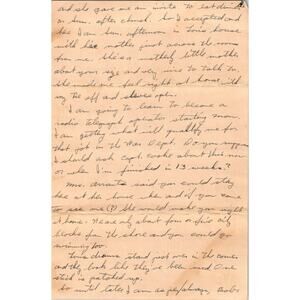 and she gave me an invite to eat dinner
on Sun. after church. So I accepted and
here I am Sun. afternoon in house
with her mother just across the room
from me. She's a motherly little mother
about your age and very nice to talk to.
She made me feel right at home with
my tie off and sleeves open.
I am going to learn to become a
radio telegraph operator starting mon.
I am getting what will qualify me for
that job in the War Dept. Do you suppose
I should ask Capt. about this now
or when I'm finished in 13 weeks?
Mrs. said you could stay
here at her house when and if you come
to see me (?) She would make you right
at home. Near only about four or five city
blocks from the shore and you could go
swimming too.
drums stand just over in the corner
and they look like they've been used. One
stick is patched up.
So until later I am as ever/always Bob